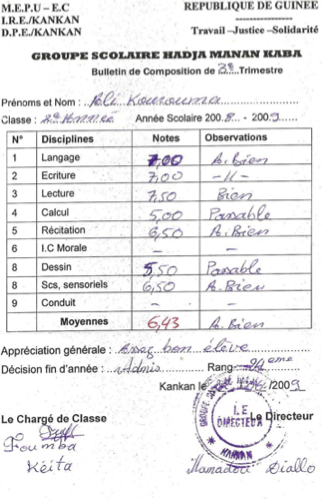 M.E.P.U – E.C REPUBLIQUE DE GUINEE
I.R.E./KANKAN
D.P.E./KANKAN Travail –Justice –Solidarité
GROUPE SCOLAIRE HADJA MANAN KABA
Bulletin de Composition de 3è Trimestre
Prénoms et Nom : Ali Kourouma
Classe : 2è Année Année Scolaire 2008 - 2009
N° Disciplines Notes Observations
1 Langage 7,00 A.bien
2 Ecriture 7,00 -//-
3 Lecture 7,50 Bien
4 Calcul 5,00 Passable
5 Récitation 6,50 A.Bien
6 I.C Morale – –
8 Dessin 5,50 Passable
8 Scs, sensoriels 6,50 A.Bien
9 Conduit – –
Moyennes 6,43 A.Bien
Appréciation générale : Assez bon élève
Décision fin d'année : Admis Rang ème
Kankan le /2009
Le Chargé de Classe Le Directeur
GROUPE SCOLAIRE
LE
DIRECTEUR
KANKAN
Foumba
Kéita Mamadou Diallo